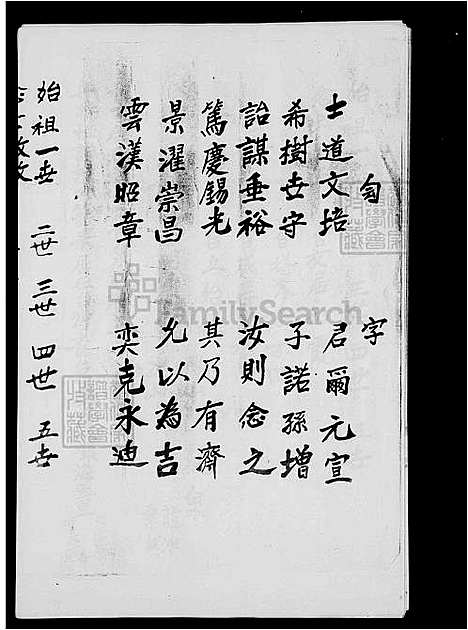 匃 字
士道文培 君爾元宣
希樹世守 子諾孫增
詒謀垂裕 汝則念之
篤慶錫光 其乃有濟
景濯崇昌 允以為吉
雲漢昭章 奕克永迪
始祖一世 二世 三世 四世 五世
FamilySearch